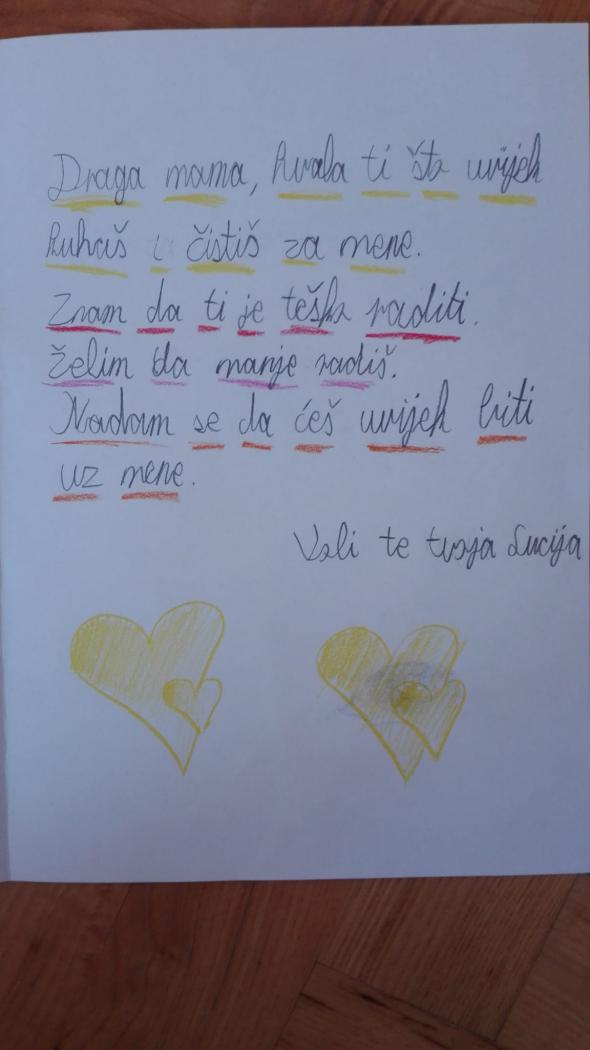 Draga mama, hvala ti što uvijek
kuhaš i čistiš za mene.
Znam da ti je teško raditi.
Želim da manje radiš.
Nadam se da ćeš uvijek biti
uz mene.
Voli te tvoja Lucija